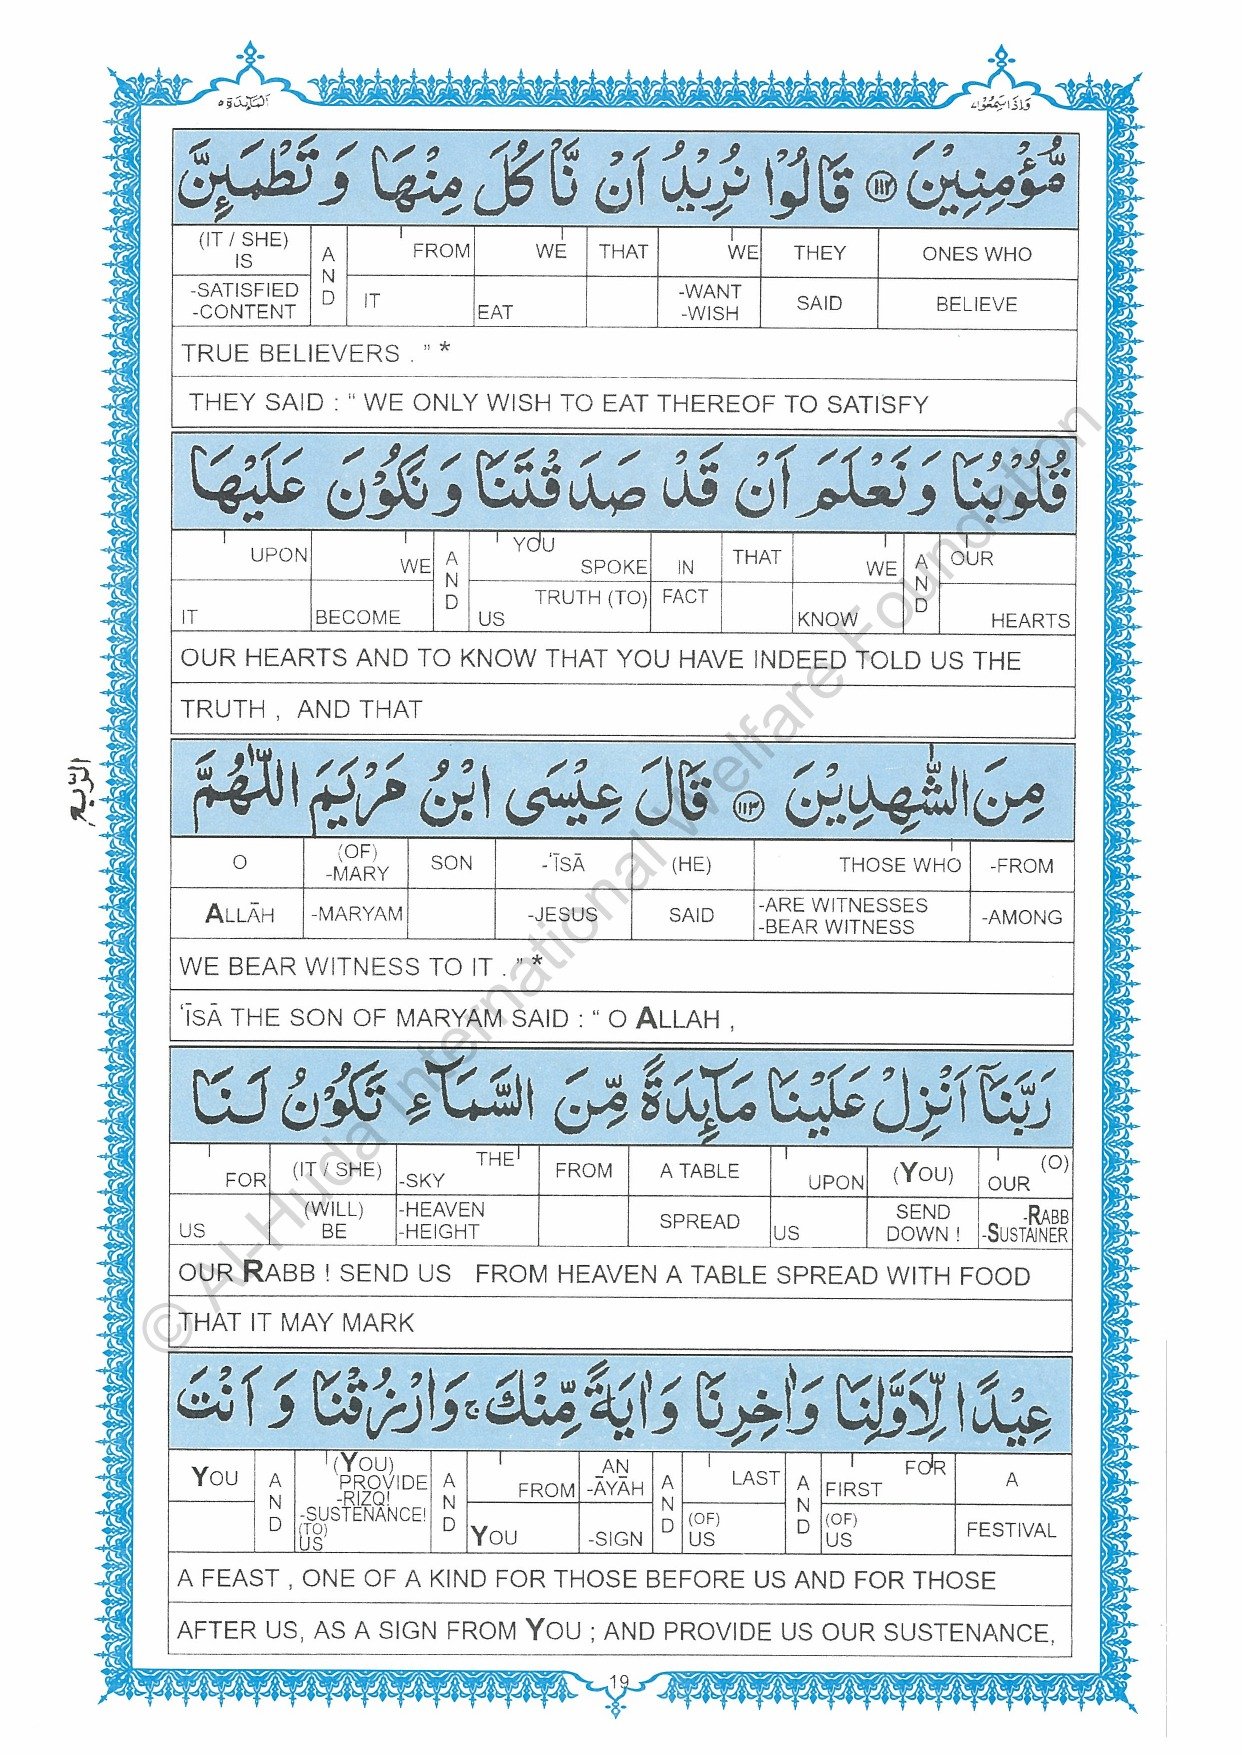 وَاِذَا سَمِعُوْا ٧
اَلْمَآئِدَة ٥
مُّؤْمِنِيْنَ ١١٢ قَالُوْا نُرِيْدُ اَنْ نَّاْكُلَ مِنْهَا وَ تَطْمَئِنَّ
ONES WHO BELIEVE
THEY SAID
WE -WANT -WISH
THAT
WE EAT
FROM IT
AND
(IT / SHE) IS -SATISFIED -CONTENT
TRUE BELIEVERS . ” *
THEY SAID : “ WE ONLY WISH TO EAT THEREOF TO SATISFY
قُلُوْبُنَا وَ نَعْلَمَ اَنْ قَدْ صَدَقْتَنَا وَ نَكُوْنَ عَلَيْهَا
OUR HEARTS
AND
WE KNOW
THAT
IN FACT
YOU SPOKE TRUTH (TO) US
AND
WE BECOME
UPON IT
OUR HEARTS AND TO KNOW THAT YOU HAVE INDEED TOLD US THE
TRUTH , AND THAT
الربع
مِنَ الشّٰهِدِيْنَ ١١٣ قَالَ عِيْسَى ابْنُ مَرْيَمَ اللّٰهُمَّ
-FROM -AMONG
THOSE WHO -ARE WITNESSES -BEAR WITNESS
(HE) SAID
-ʿĪSĀ -JESUS
SON
(OF) -MARY -MARYAM
O ALLĀH
WE BEAR WITNESS TO IT . ” *
ʿĪSĀ THE SON OF MARYAM SAID : “ O ALLAH ,
رَبَّنَآ اَنْزِلْ عَلَيْنَا مَآئِدَةً مِّنَ السَّمَآءِ تَكُوْنُ لَنَا
(O) OUR -RABB -SUSTAINER
(YOU) SEND DOWN !
UPON US
A TABLE SPREAD
FROM
THE -SKY -HEAVEN -HEIGHT
(IT / SHE) (WILL) BE
FOR US
OUR RABB ! SEND US FROM HEAVEN A TABLE SPREAD WITH FOOD
THAT IT MAY MARK
عِيْدًا لِّاَوَّلِنَا وَ اٰخِرِنَا وَ اٰيَةً مِّنْكَ ج وَ ارْزُقْنَا وَ اَنْتَ
A FESTIVAL
FOR FIRST (OF) US
AND
LAST (OF) US
AND
AN -ĀYĀH -SIGN
FROM YOU
AND
(YOU) PROVIDE -RIZQ! -SUSTENANCE! (TO) US
AND
YOU
A FEAST , ONE OF A KIND FOR THOSE BEFORE US AND FOR THOSE
AFTER US, AS A SIGN FROM YOU ; AND PROVIDE US OUR SUSTENANCE,
19
© Al-Huda International Welfare Foundation